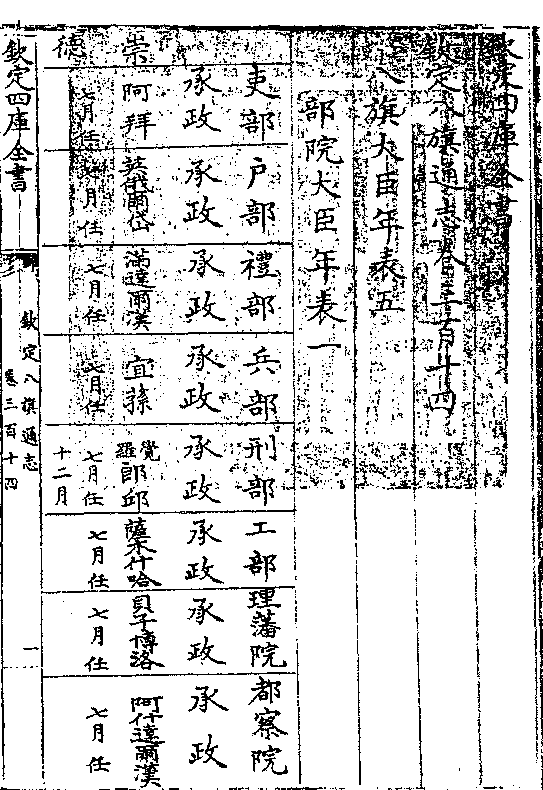 欽定四庫全書
欽定八旗通志卷三百十四
八旗大臣年表五
部院大臣年表一
吏部 戶部 禮部 兵部 刑部 工部 理藩院 都察院
承政 承政 承政 承政 承政 承政 承政 承政
崇 阿拜 英俄爾岱 滿達爾漢 宜蓀 覺羅郎邱 薩木什哈 貝子博洛 阿什達爾漢
德 七月任 七月任 七月任 七月任 七月任 七月任 七月任 七月任
十二月
欽定四庫全書
欽定八旗通志
卷三百十四
一